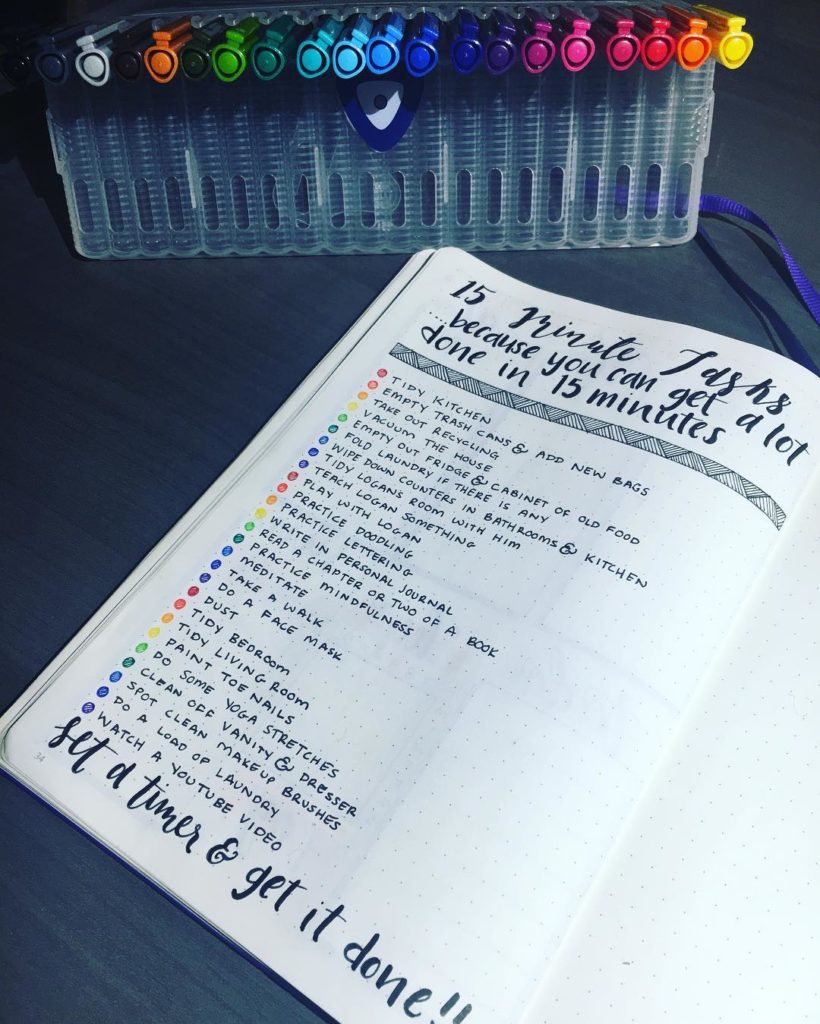 15 Minute Tasks
...because you can get a lot
done in 15 minutes
TIDY KITCHEN
EMPTY TRASH CANS & ADD NEW BAGS
TAKE OUT RECYCLING
VACUUM THE HOUSE
EMPTY OUT FRIDGE & CABINET OF OLD FOOD
FOLD LAUNDRY IF THERE IS ANY
WIPE DOWN COUNTERS IN BATHROOMS & KITCHEN
TIDY LOGANS ROOM WITH HIM
TEACH LOGAN SOMETHING
PLAY WITH LOGAN
PRACTICE DOODLING
PRACTICE LETTERING
WRITE IN PERSONAL JOURNAL
READ A CHAPTER OR TWO OF A BOOK
PRACTICE MINDFULNESS
MEDITATE
TAKE A WALK
DO A FACE MASK
DUST
TIDY BEDROOM
TIDY LIVING ROOM
PAINT TOE NAILS
DO SOME YOGA STRETCHES
CLEAN OFF VANITY & DRESSER
SPOT CLEAN MAKEUP BRUSHES
DO A LOAD OF LAUNDRY
WATCH A YOUTUBE VIDEO
set a timer & get it done!!
34